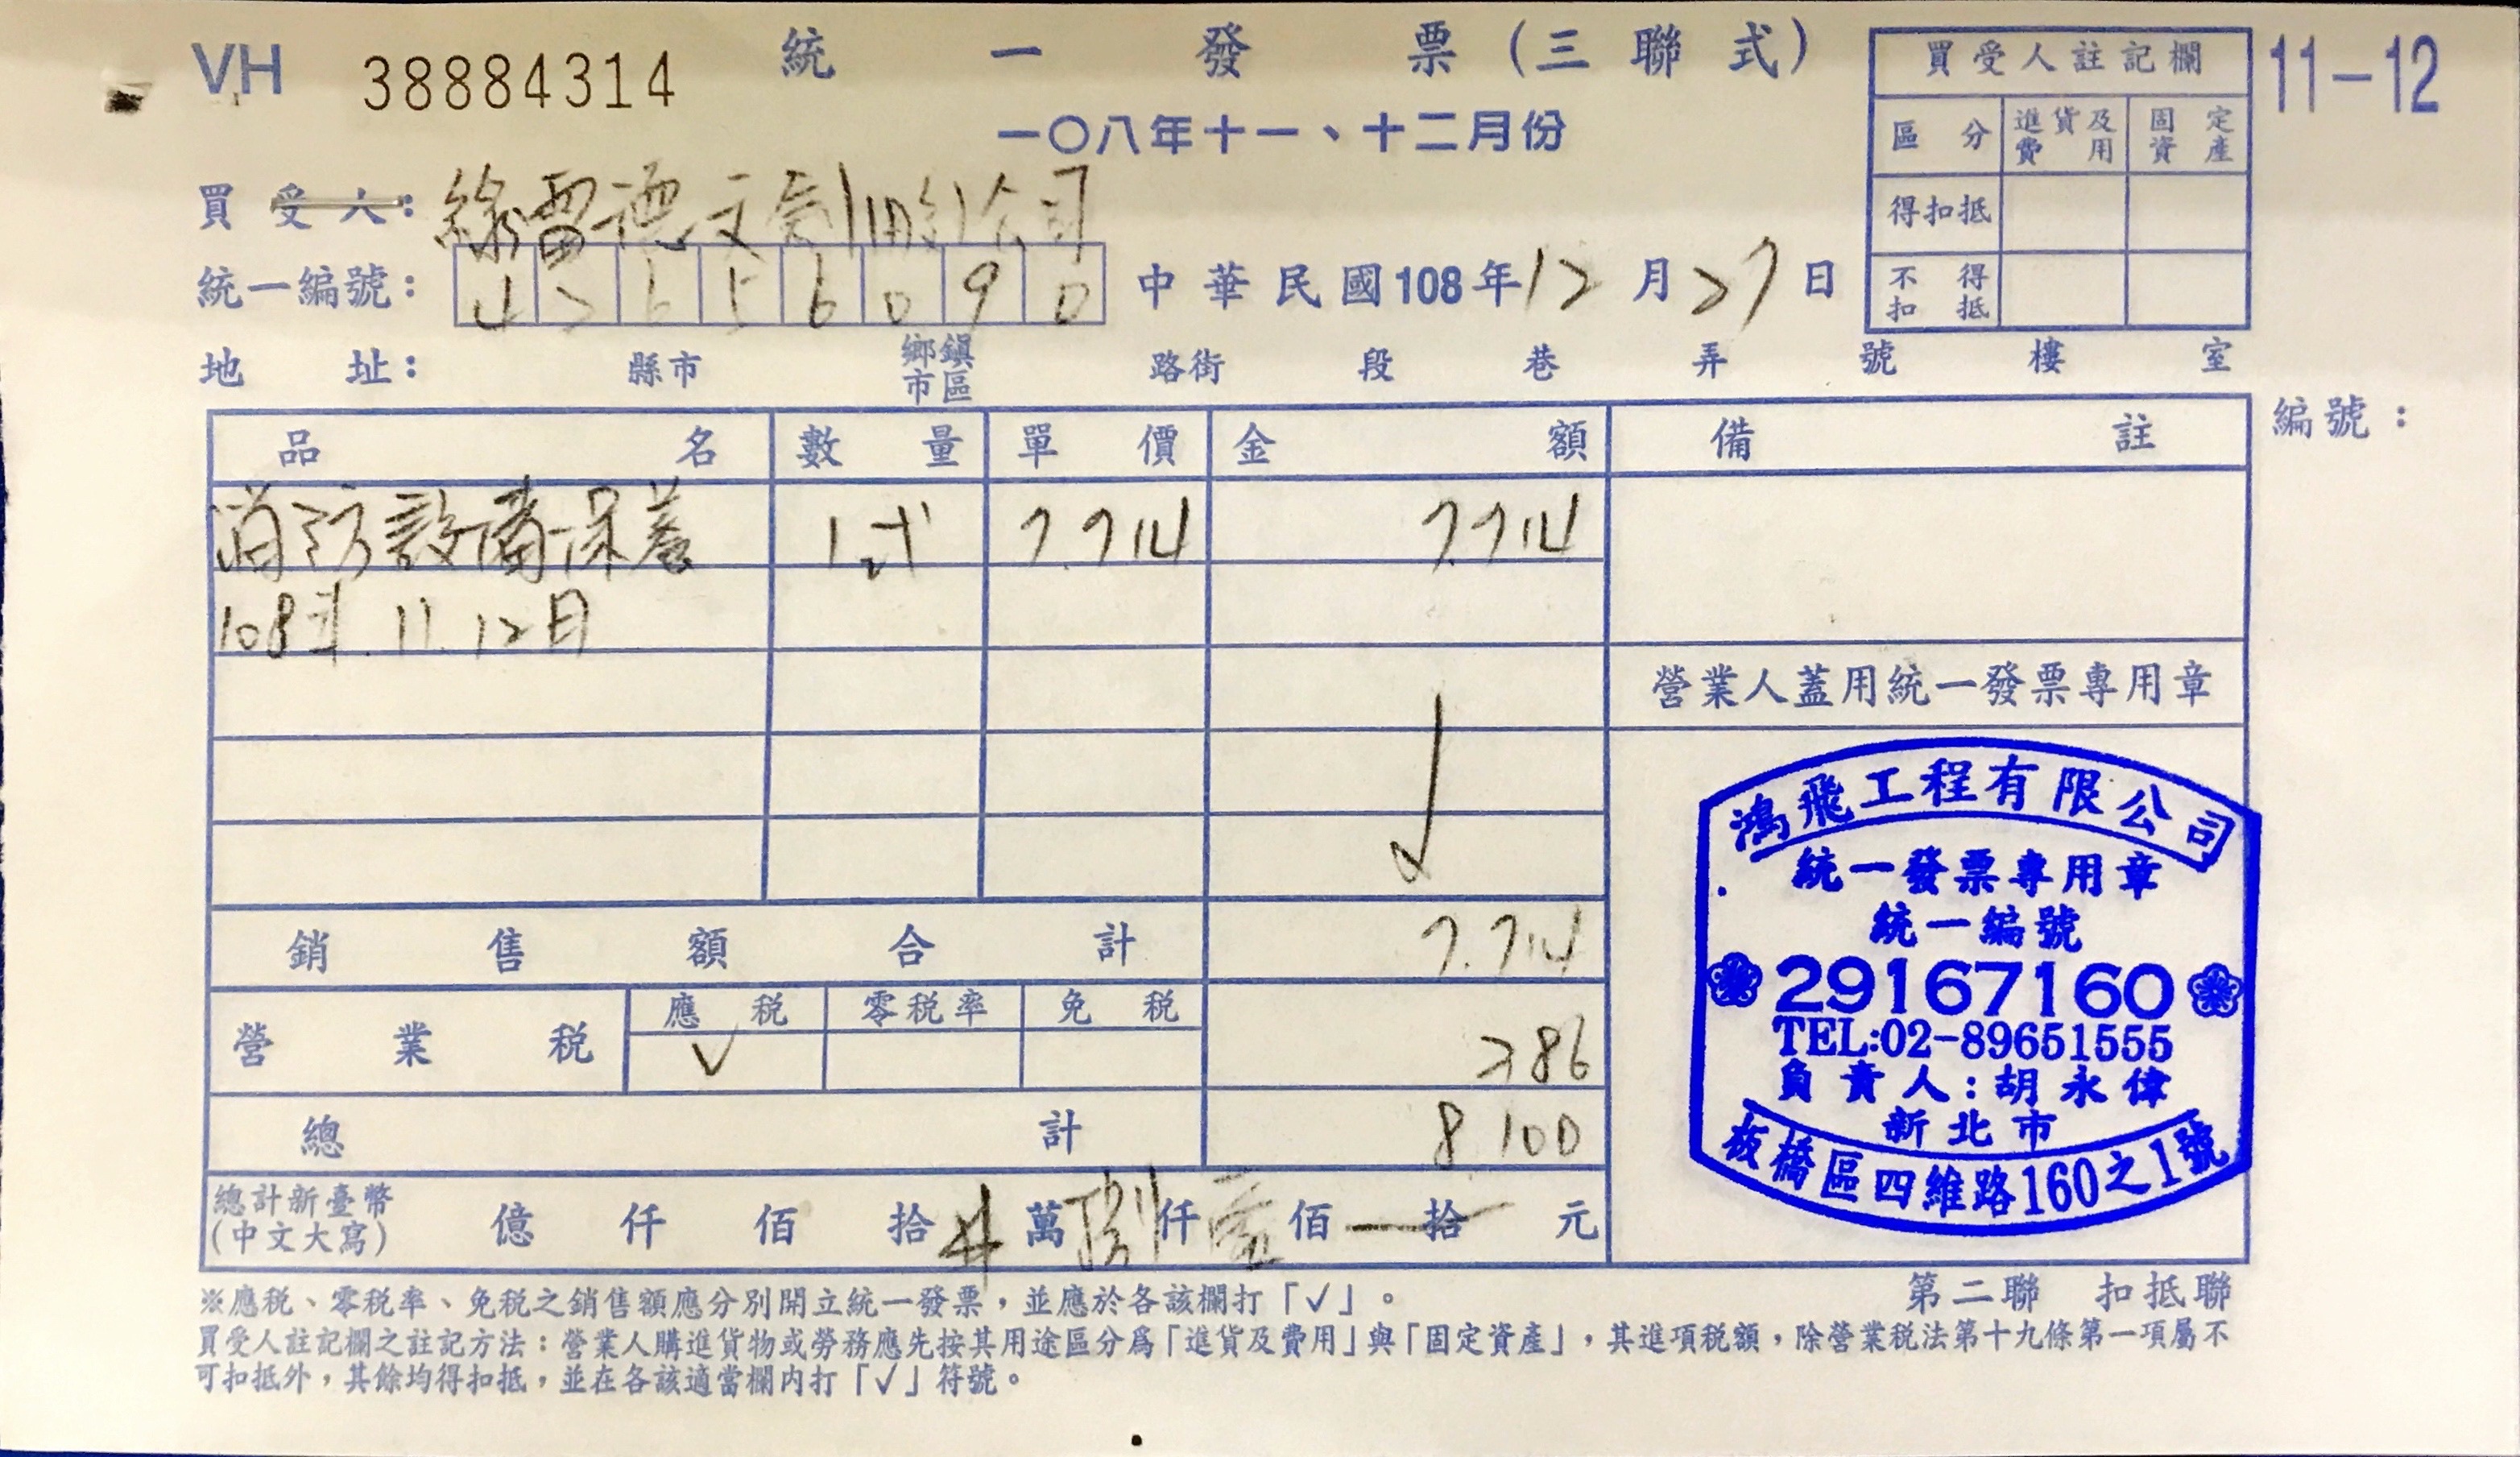 VH 38884314 統一發票(三聯式) 11-12
一〇八年十一、十二月份
買受人註記欄
區分 進貨及費用 固定資產
得扣抵
不得扣抵
買受人: 德文創 公司
統一編號: 42656090 中華民國108年12月27日
地址: 縣市 鄉鎮市區 路街 段 巷 弄 號 樓 室
編號:
品名 數量 單價 金額 備註
消防設備保養 1式 7.714 7.714
108年.11.12月
營業人蓋用統一發票專用章
銷售額合計 7.714
營業稅 應稅 ✓ 零稅率 免稅 386
總計 8100
總計新臺幣(中文大寫) 億 仟 佰 拾 萬 捌仟 壹佰 拾 元
鴻飛工程有限公司
統一發票專用章
統一編號
29167160
TEL:02-89651555
負責人:胡永偉
新北市
板橋區四維路160之1號
第二聯 扣抵聯
※應稅、零稅率、免稅之銷售額應分別開立統一發票,並應於各該欄打「✓」。
買受人註記欄之註記方法:營業人購進貨物或勞務應先按其用途區分為「進貨及費用」與「固定資產」,其進項稅額,除營業稅法第十九條第一項屬不
可扣抵外,其餘均得扣抵,並在各該適當欄內打「✓」符號。